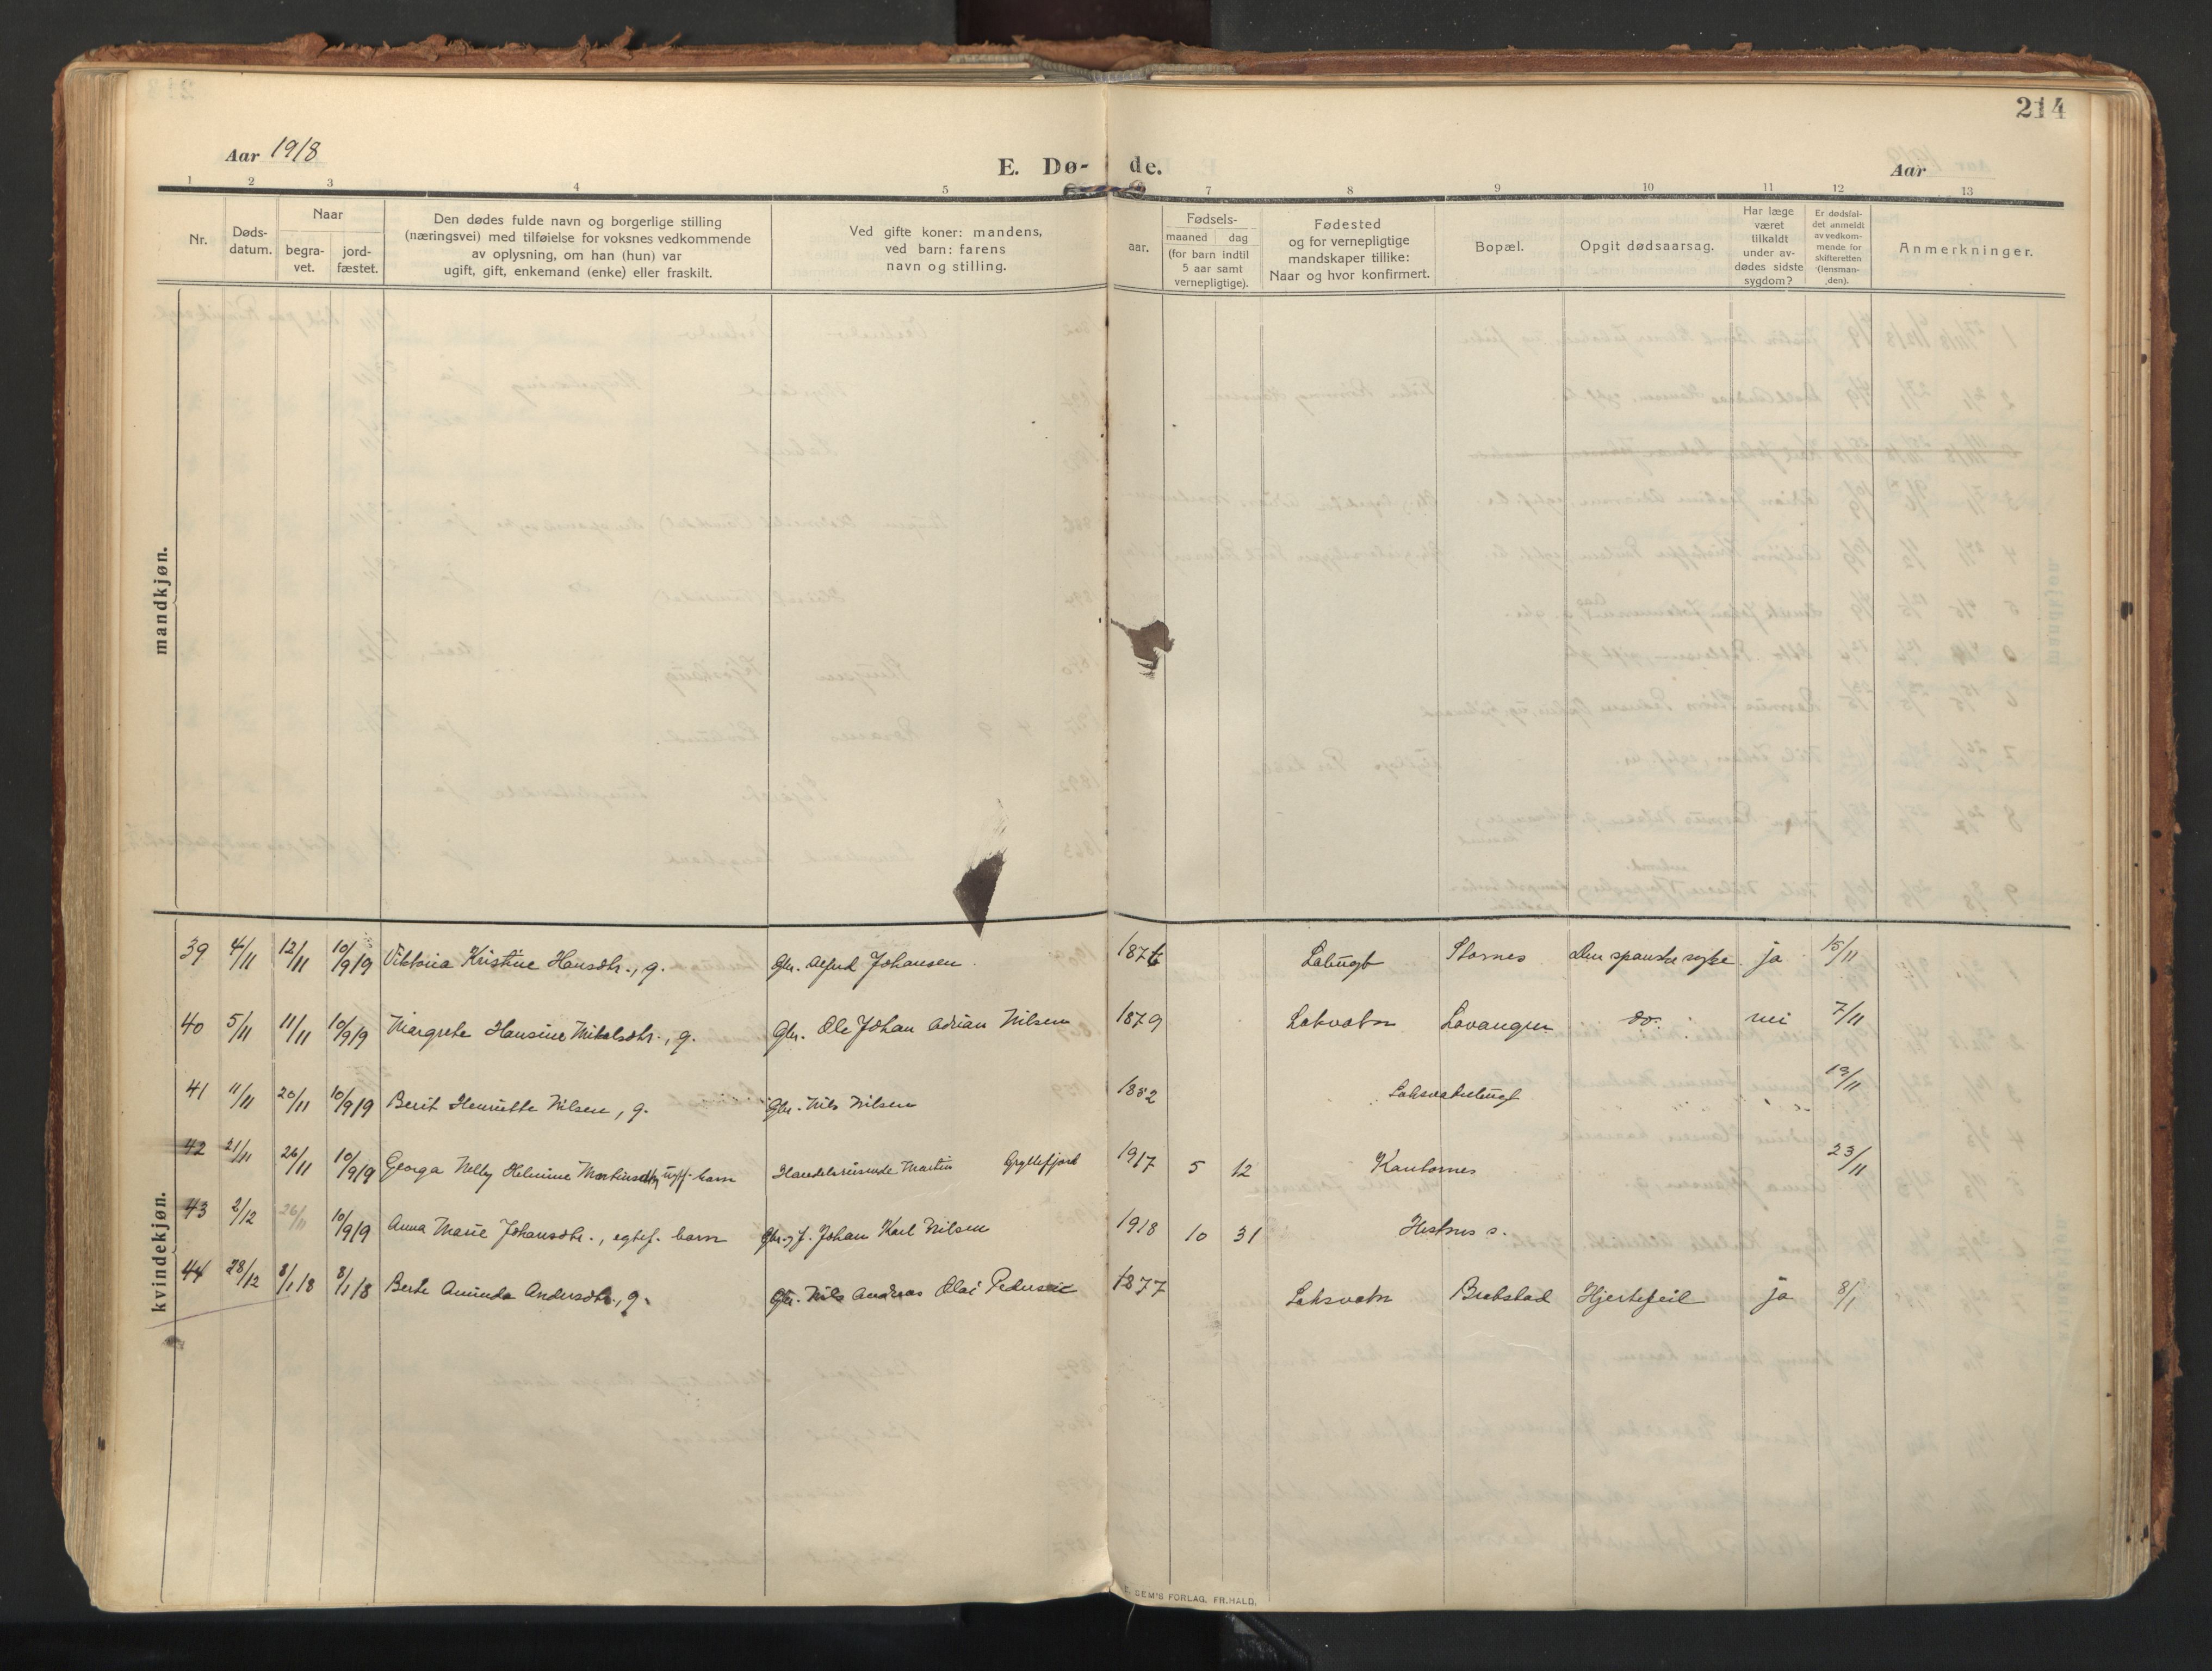 214
Aar 1918
E. Dø- de.
Aar
1 2 3 4 5 7 8 9 10 11 12 13
Nr.
Døds-
datum.
Naar
begra-
vet.
jord-
fæstet.
Den dødes fulde navn og borgerlige stilling
(næringsvei) med tilføielse for voksnes vedkommende
av oplysning, om han (hun) var
ugift, gift, enkemand (enke) eller fraskilt.
Ved gifte koner: mandens,
ved barn: farens
navn og stilling.
aar.
Fødsels-
maaned dag
(for barn indtil
5 aar samt
vernepligtige).
Fødested
og for vernepligtige
mandskaper tillike:
Naar og hvor konfirmert.
Bopæl.
Opgit dødsaarsag.
Har læge
været
tilkaldt
under av-
dødes sidste
sygdom?
Er dødsfal-
det anmeldt
av vedkom-
mende for
skifteretten
(lensman-
den).
Anmerkninger.
mandkjøn.
kvindekjøn.
39 4/11 12/11 10/9 19 Viktoria Kristine Hansdtr., g. Gbr. Alfred Johansen 1876 Stornes Den spanske syke ja 15/11
40 5/11 11/11 10/9 19 Margrete Hansine Mikalsdtr., g. Gbr. Ole Johan Adrian Nilsen 1879 Laksvatn Lavangen do. nei 7/11
41 11/11 20/11 10/9 19 Berit Henriette Nilsen, g. Gbr. Nils Nilsen 1882 Laksvatnbugt " " 19/11
42 21/11 26/11 10/9 19 Georga Nelly Helmine Martinsdtr, barn Handelsreisende Martin Gryllefjord 1917 5 12 Kantornes 23/11
43 2/12 26/11 10/9 19 Anna Marie Johansdtr., egtef. barn Gbr. J. Johan Karl Nilsen 1918 10 31 Hestnes s.
44 28/12 8/1 18 8/1 18 Berte Aminda Andersdtr., g. Gbr. Nils Andreas Olai Pedersen 1877 Laksvatn Brebstad Hjertefeil ja 8/1
DEM'S FORLAG, FR.HALD.